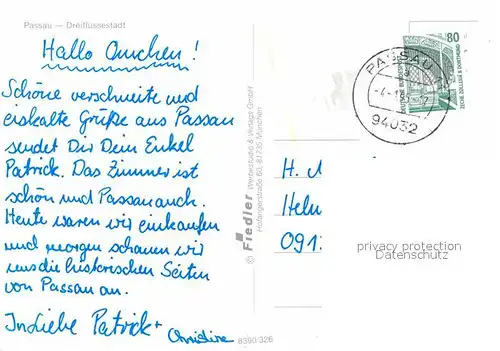 Passau — Dreiflüssestadt
Hallo Omchen!
Schöne verschneite und
eiskalte Grüße aus Passau
sendet Dir Dein Enkel
Patrick. Das Zimmer ist
schön und Passau auch.
Heute waren wir einkaufen
und morgen schauen wir
uns die historischen Seiten
von Passau an.
In Liebe Patrick +
Christine
© Fiedler Werbestudio & Verlags GmbH
Hofangerstraße 60, 81735 München
8390/326
80
DEUTSCHE BUNDESPOST
ZECHE ZOLLERN II DORTMUND
PASSAU
94032
H.
091
privacy protection
Datenschutz